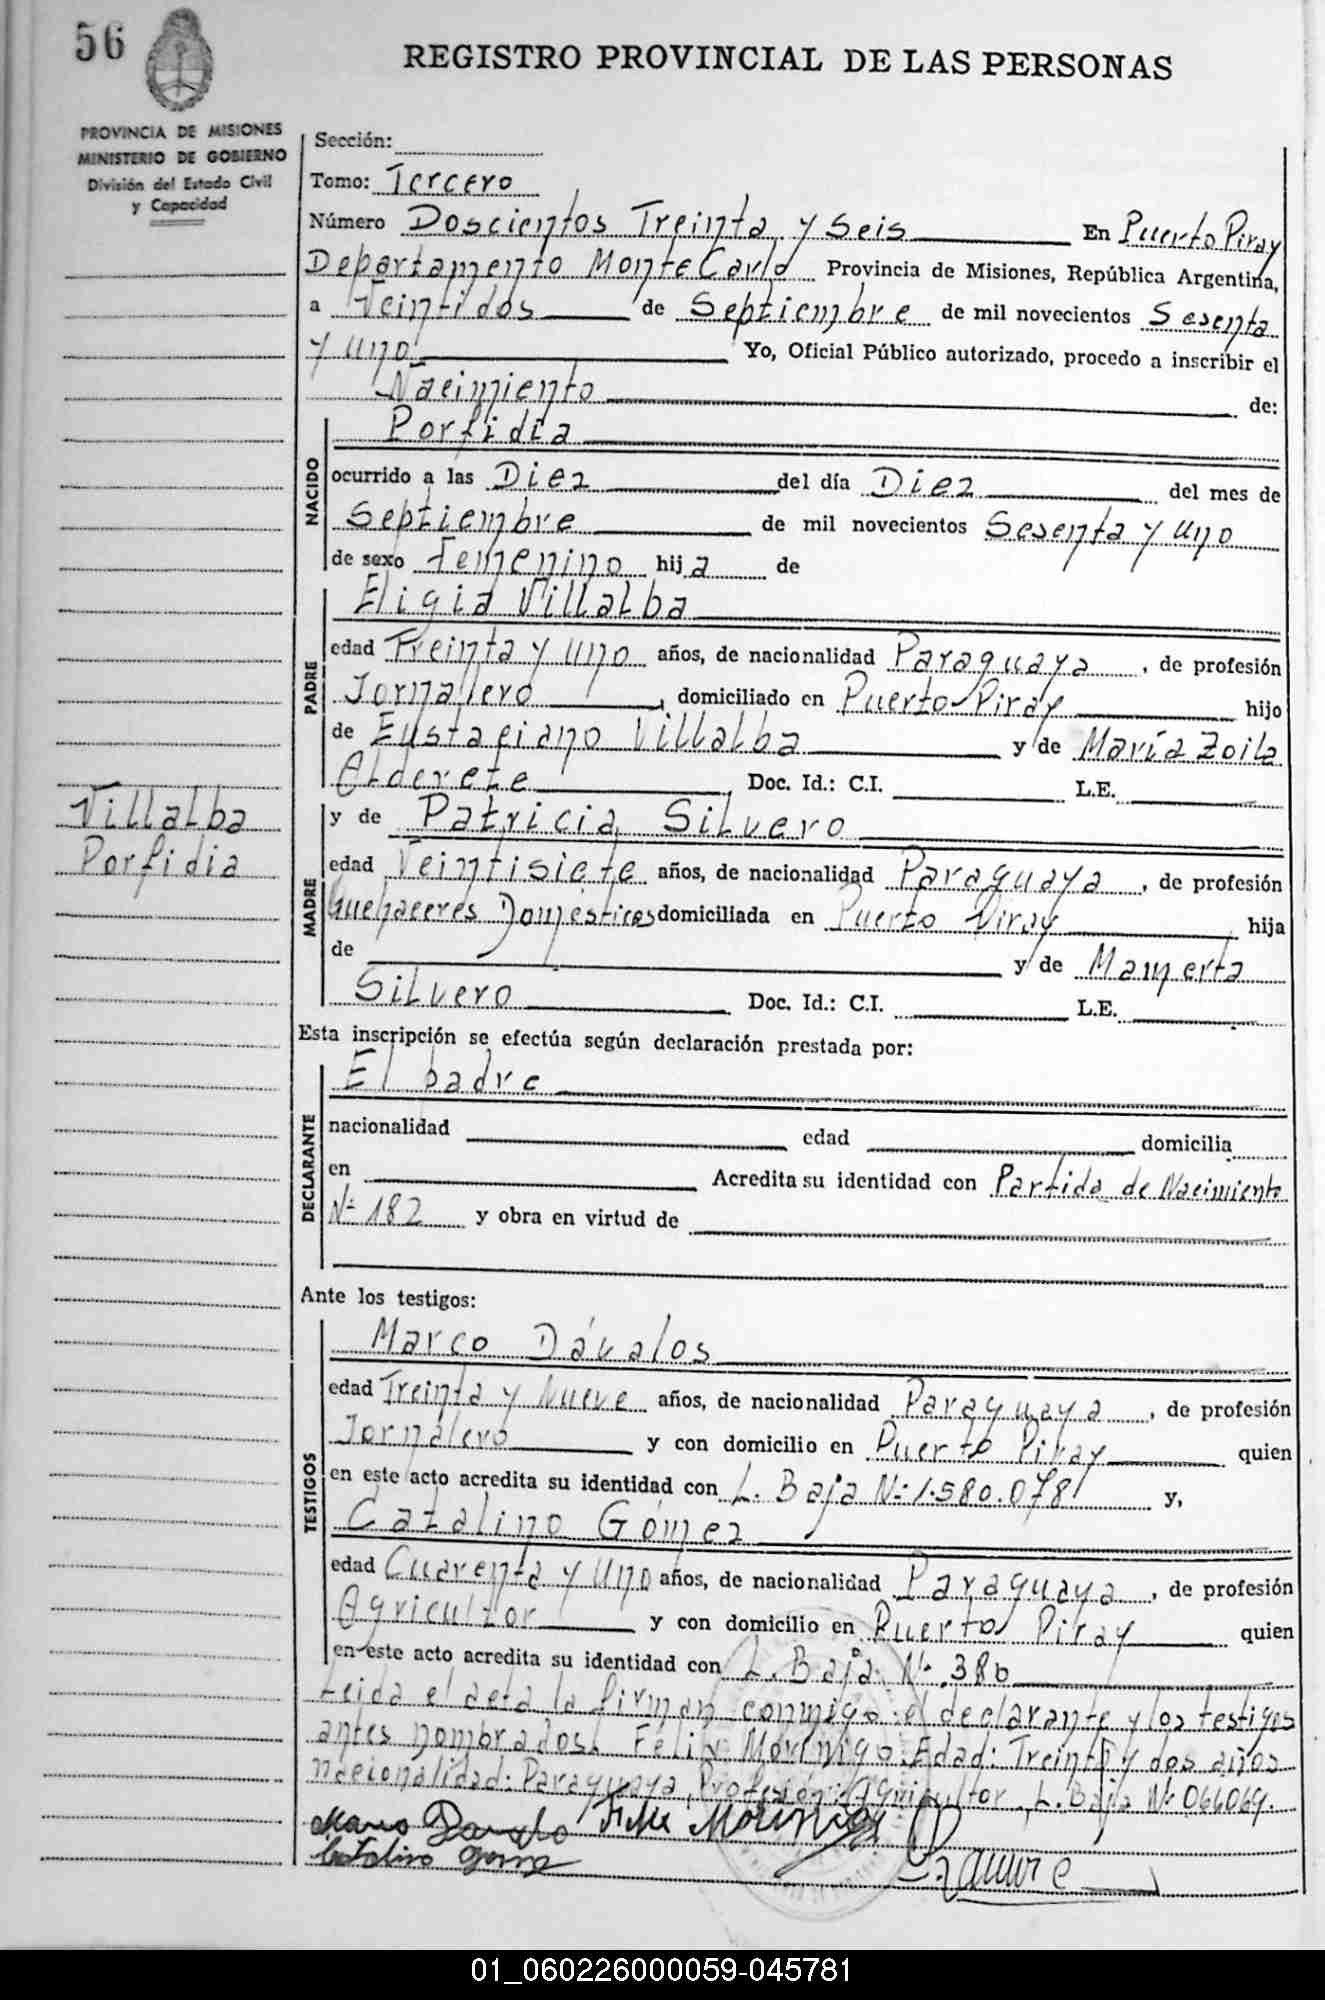 56
REGISTRO PROVINCIAL DE LAS PERSONAS
PROVINCIA DE MISIONES
MINISTERIO DE GOBIERNO
División del Estado Civil
y Capacidad
Sección:
Tomo: Tercero
Número Doscientos Treinta y Seis En Puerto Piray
Departamento Monte Carlo Provincia de Misiones, República Argentina,
a Veintidos de Septiembre de mil novecientos Sesenta
y uno Yo, Oficial Público autorizado, procedo a inscribir el
Nacimiento de:
NACIDO
Porfidia
ocurrido a las Diez del día Diez del mes de
Septiembre de mil novecientos Sesenta y uno
de sexo Femenino hija de
PADRE
Eligia Villalba
edad Treinta y uno años, de nacionalidad Paraguaya, de profesión
Jornalero, domiciliado en Puerto Piray hijo
de Eustaciano Villalba y de María Zoila
Alderete Doc. Id.: C.I. L.E.
Villalba
Porfidia
MADRE
y de Patricia Silvero
edad Veintisiete años, de nacionalidad Paraguaya, de profesión
Quehaceres Domésticos domiciliada en Puerto Piray hija
de y de Mamerta
Silvero Doc. Id.: C.I. L.E.
Esta inscripción se efectúa según declaración prestada por:
DECLARANTE
El padre
nacionalidad edad domicilia
en Acredita su identidad con Partida de Nacimiento
Nº 182 y obra en virtud de
Ante los testigos:
TESTIGOS
Marco Dávalos
edad Treinta y Nueve años, de nacionalidad Paraguaya, de profesión
Jornalero y con domicilio en Puerto Piray quien
en este acto acredita su identidad con L. Baja Nº 1.580.078 y,
Catalino Gómez
edad Cuarenta y uno años, de nacionalidad Paraguaya, de profesión
Agricultor y con domicilio en Puerto Piray quien
en este acto acredita su identidad con L. Baja Nº 386
Leida el acta la firman conmigo el declarante y los testigos
antes nombrados. Felix Morinigo. Edad: Treinta y dos años
nacionalidad: Paraguaya, Profesion: Agricultor, L. Baja Nº 064069.
Marco Davalo Felix Morinigo
Catalino Gomez
01_060226000059-045781